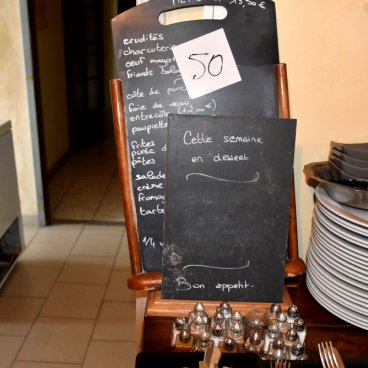 13,50€
crudités
charcuterie
œuf mayo
friands salade
50
côte de porc
foie de veau
entrecôte (+2,00€)
paupiette
frites
purée
pâtes
salade
crème
fromage
tarte
1/4
Cette semaine
en dessert
Bon appetit.